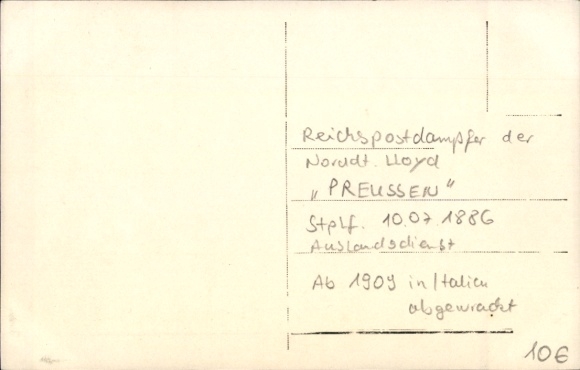 Reichspostdampfer der
Norddt. Lloyd
„PREUSSEN"
Stplf. 10.07.1886
Auslandsdienst
Ab 1909 in Italien
abgewrackt
10€